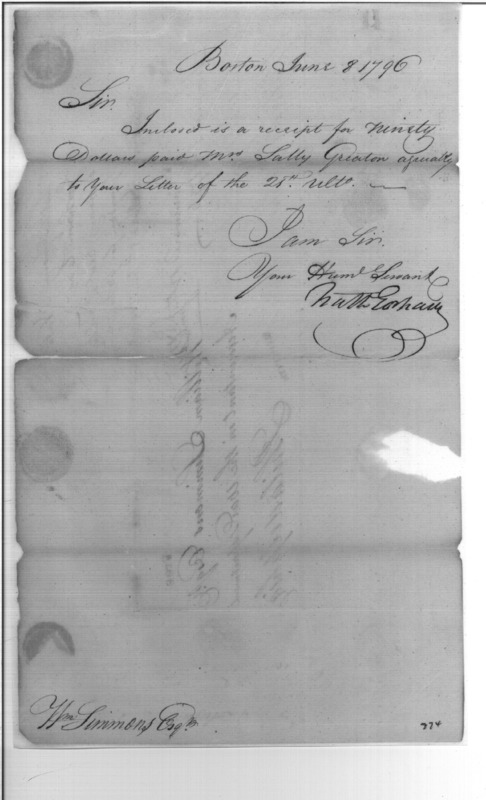 Boston June 8 1796
Sir.
Inclosed is a receipt for ninety
Dollars paid Mrs Sally Greaton agreeably
to your Letter of the 28th. Ulto.
I am Sir.
Your Humb Servant
Nath Gorham
Wm Simmons Esqr.
374